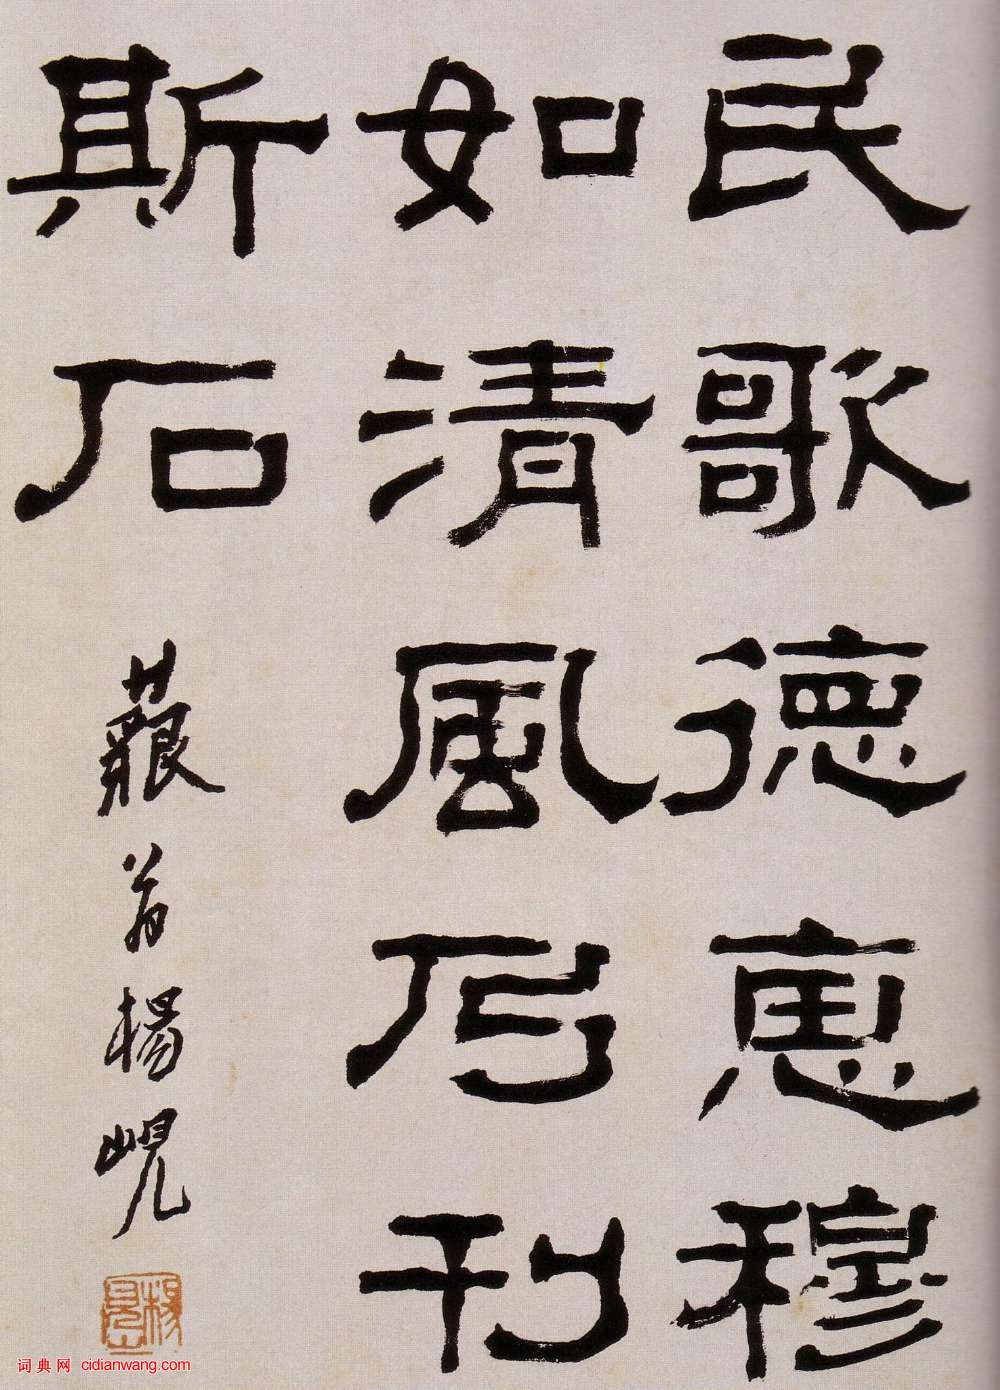 民歌德惠穆
如清風乃刊
斯石
藐翁楊峴
楊峴
词典网 cidianwang.com